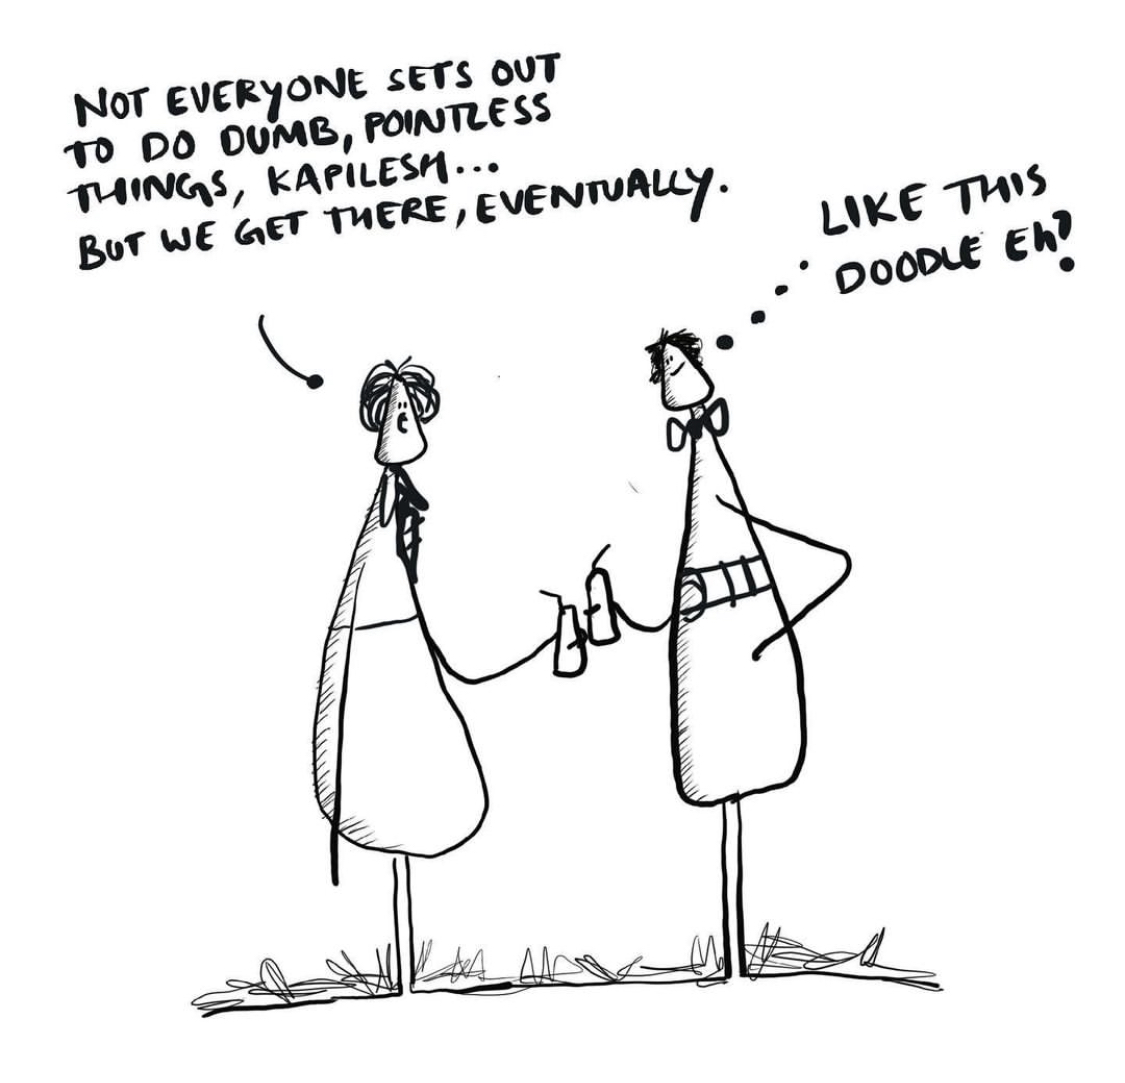 NOT EVERYONE SETS OUT
TO DO DUMB, POINTLESS
THINGS, KAPILESH...
BUT WE GET THERE, EVENTUALLY.
LIKE THIS
DOODLE EH?